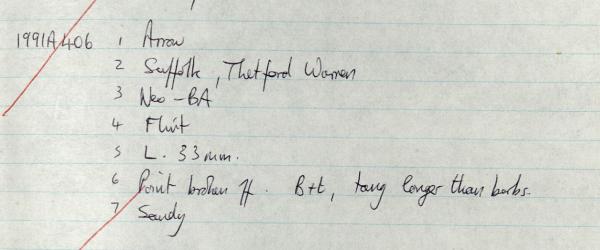 1991A406 1 Arrow
2 Suffolk, Thetford Warren
3 Neo-BA
4 Flint
5 L. 33mm.
6 Point broken off. B+t, tang longer than barbs.
7 Sandy